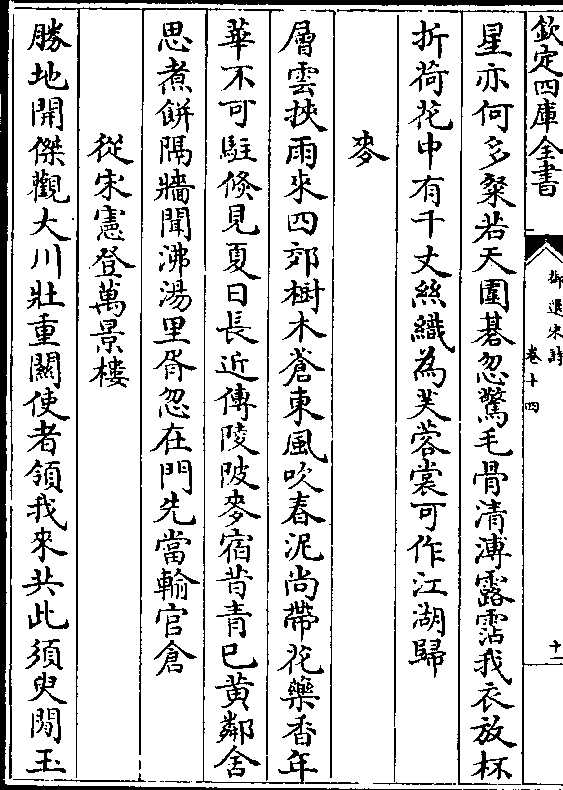 欽定四庫全書
御選宋詩
卷十四
十一
星亦何多粲若天圍碁忽驚毛骨清溥露霑我衣放杯
折荷花中有千丈絲織為芙蓉裳可作江湖歸
麥
層雲挾雨來四郊樹木蒼東風吹春泥尚帶花藥香年
華不可駐倐見夏日長近傳陵陂麥宿昔青已黄鄰舍
思煮餅隔牆聞沸湯里胥忽在門先當輸官倉
從宋憲登萬景樓
勝地開傑觀大川壯重關使者領我來共此須臾閒玉